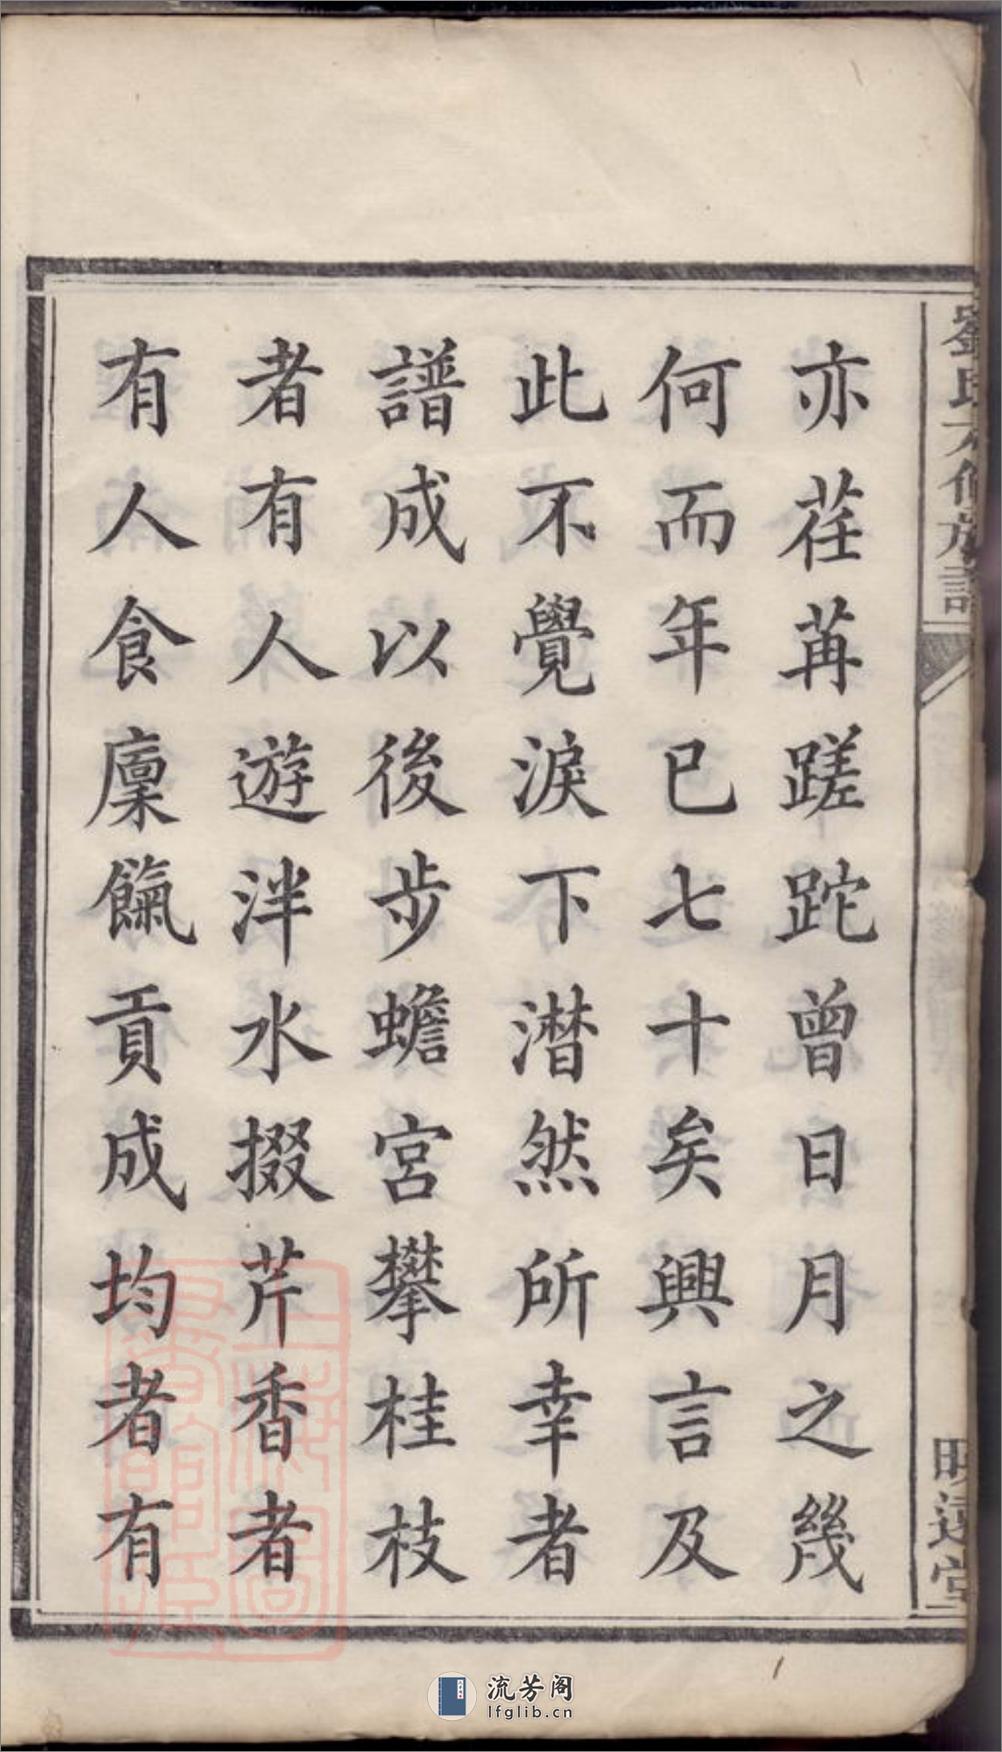 亦荏苒蹉跎曾日月之幾
何而年已七十矣興言及
此不覺淚下潸然所幸者
譜成以後步蟾宮攀桂枝
者有人遊泮水掇芹香者
有人食廩餼貢成均者有
劉氏六修族譜
映遠堂
上海圖書館藏
流芳阁
lfglib.cn